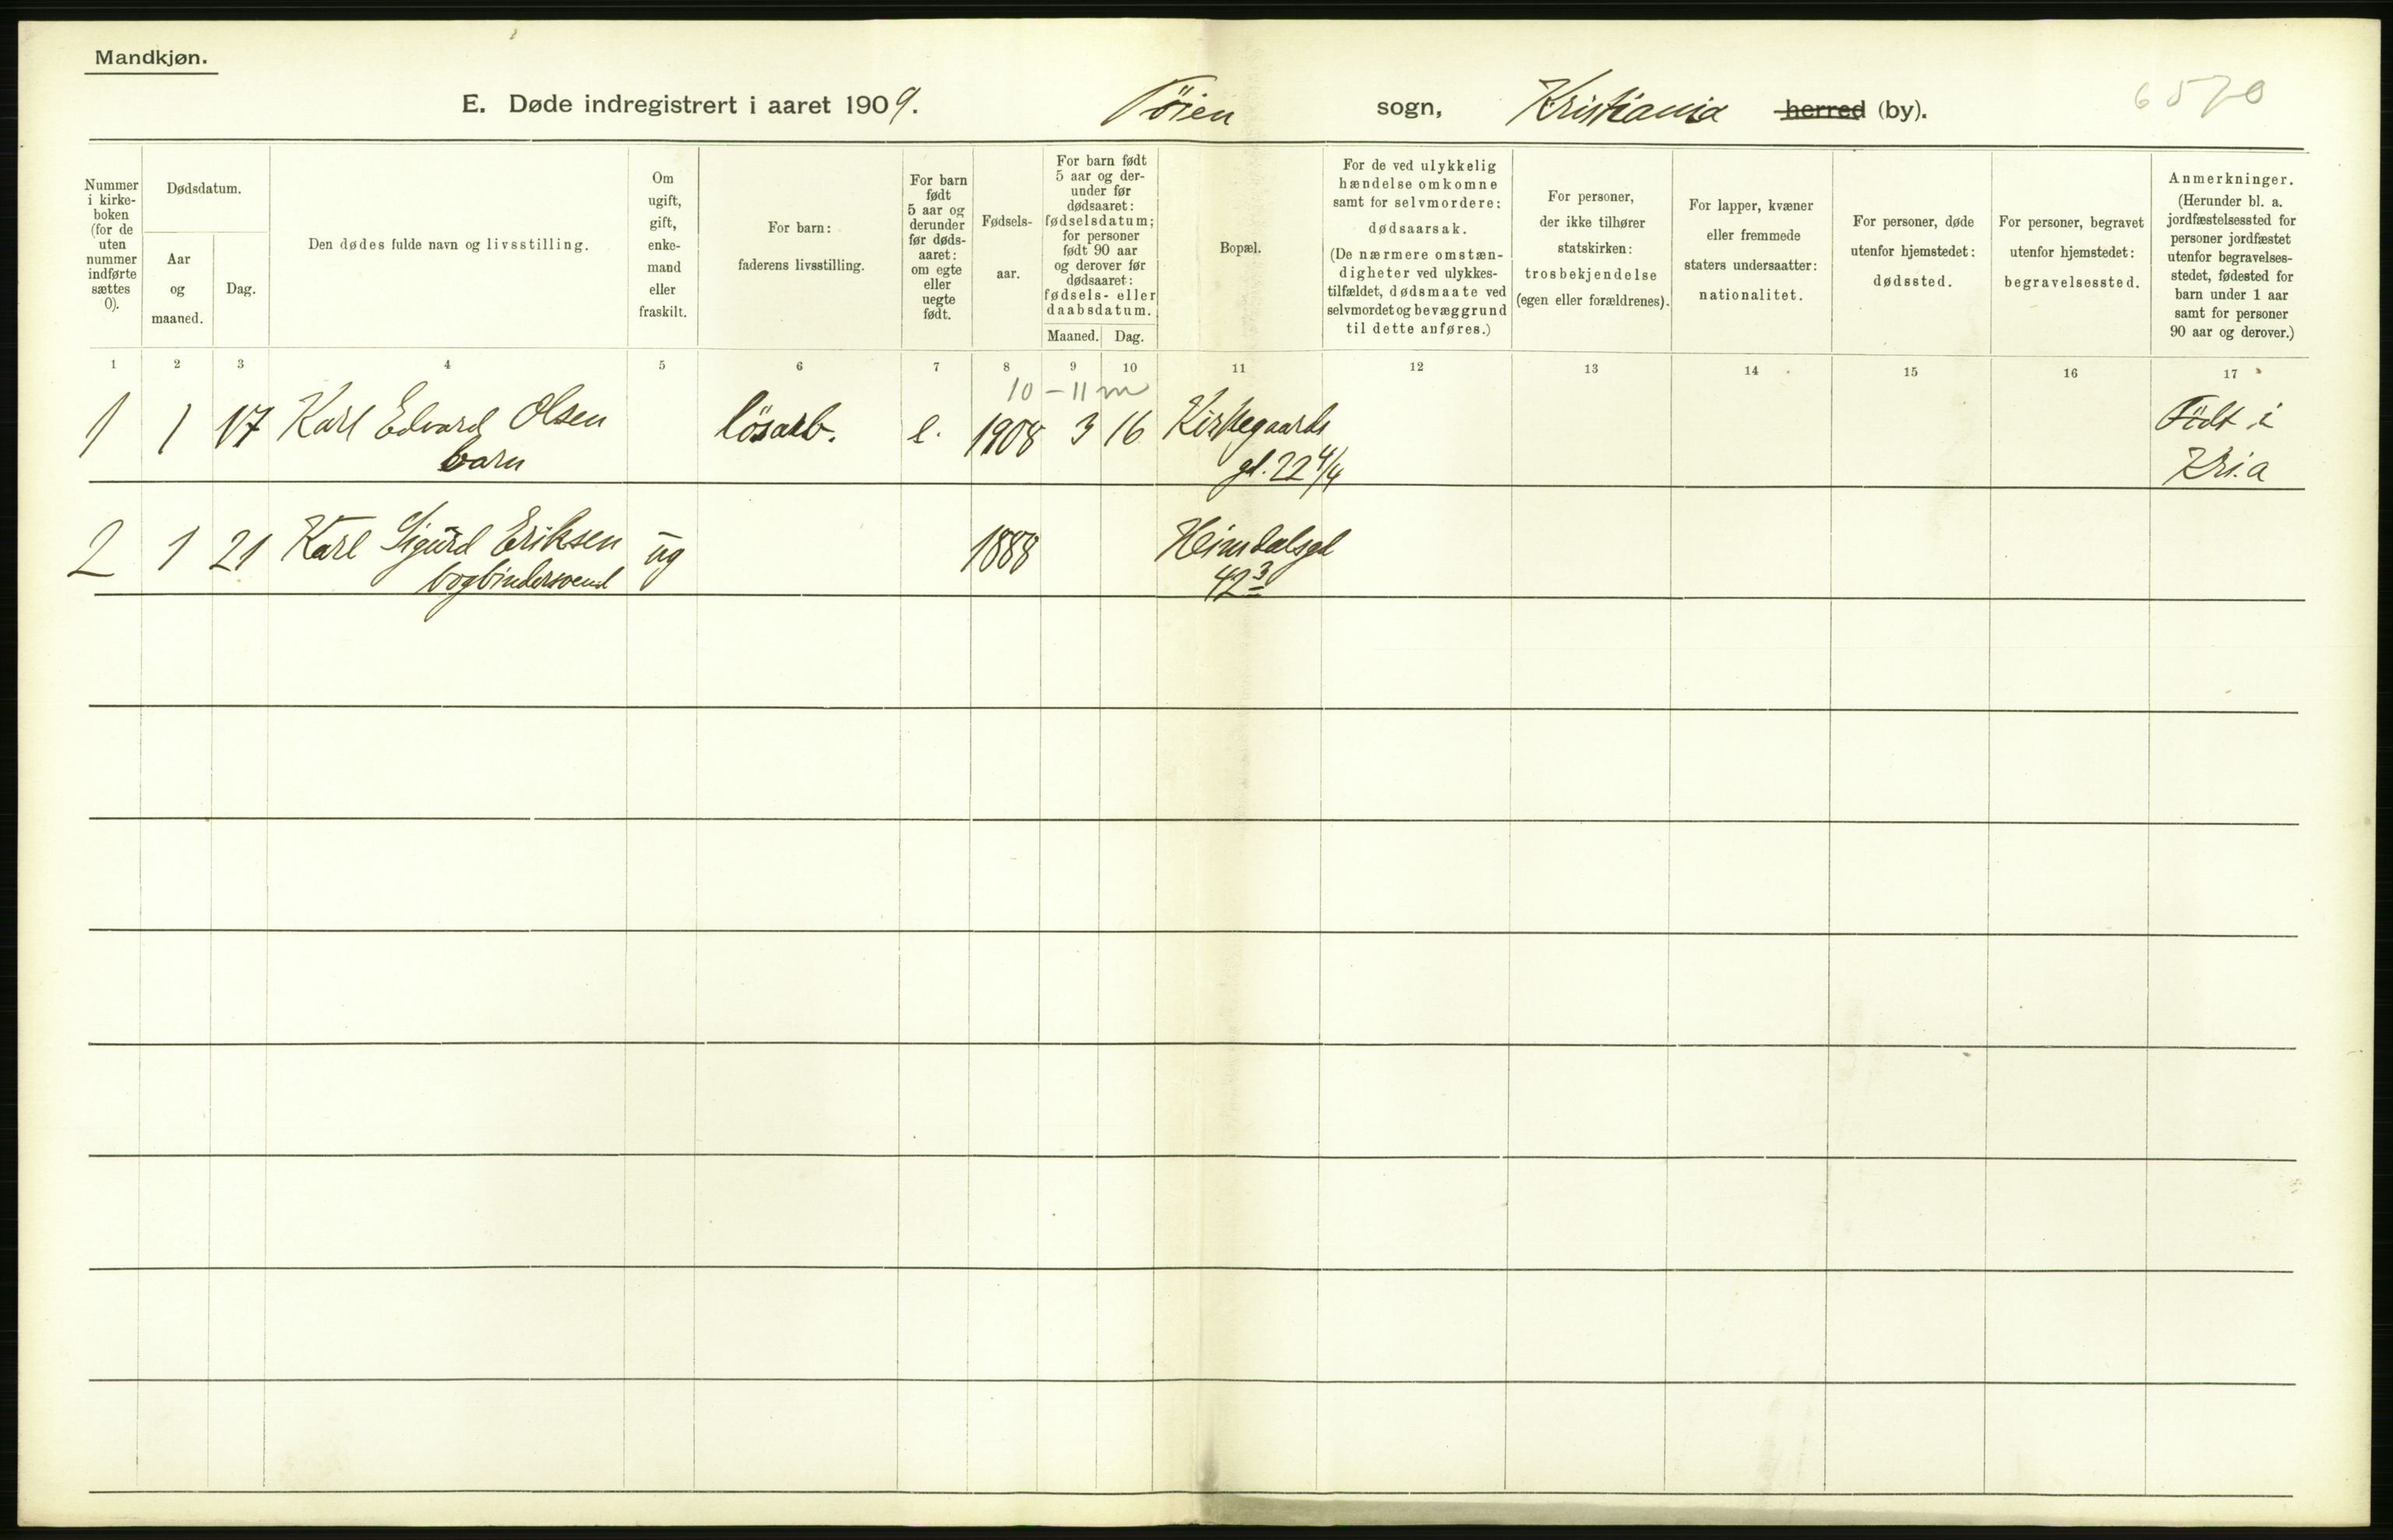 Mandkjøn.
E. Døde indregistrert i aaret 1909. Töien sogn, Kristiania herred (by). 6570
Nummer i kirke-boken (for de uten nummer indførte sættes 0).
Dødsdatum.
Aar og maaned.
Dag.
Den dødes fulde navn og livsstilling.
Om ugift, gift, enke-mand eller fraskilt.
For barn: faderens livsstilling.
For barn født 5 aar og derunder før døds-aaret: om egte eller uegte født.
Fødsels-aar.
For barn født 5 aar og der-under før dødsaaret: fødselsdatum; for personer født 90 aar og derover før dødsaaret: fødsels- eller daabsdatum.
Maaned. Dag.
Bopæl.
For de ved ulykkelig hændelse omkomne samt for selvmordere: dødsaarsak. (De nærmere omstæn-digheter ved ulykkes-tilfældet, dødsmaate ved selvmordet og bevæggrund til dette anføres.)
For personer, der ikke tilhører statskirken: trosbekjendelse (egen eller forældrenes).
For lapper, kvæner eller fremmede staters undersaatter: nationalitet.
For personer, døde utenfor hjemstedet: dødssted.
For personer, begravet utenfor hjemstedet: begravelsessted.
Anmerkninger. (Herunder bl. a. jordfæstelsessted for personer jordfæstet utenfor begravelses-stedet, fødested for barn under 1 aar samt for personer 90 aar og derover.)
1 2 3 4 5 6 7 8 9 10 11 12 13 14 15 16 17
10 - 11 m
1 1 17 Karl Edvard Olsen lösarb. e. 1908 3 16 Kirkegaards Födt i
barn gd. 22 4/4 Kri.a
2 1 21 Karl Sigurd Eriksen ug 1888 Heimdalsgd
bogbindersvend 42 3